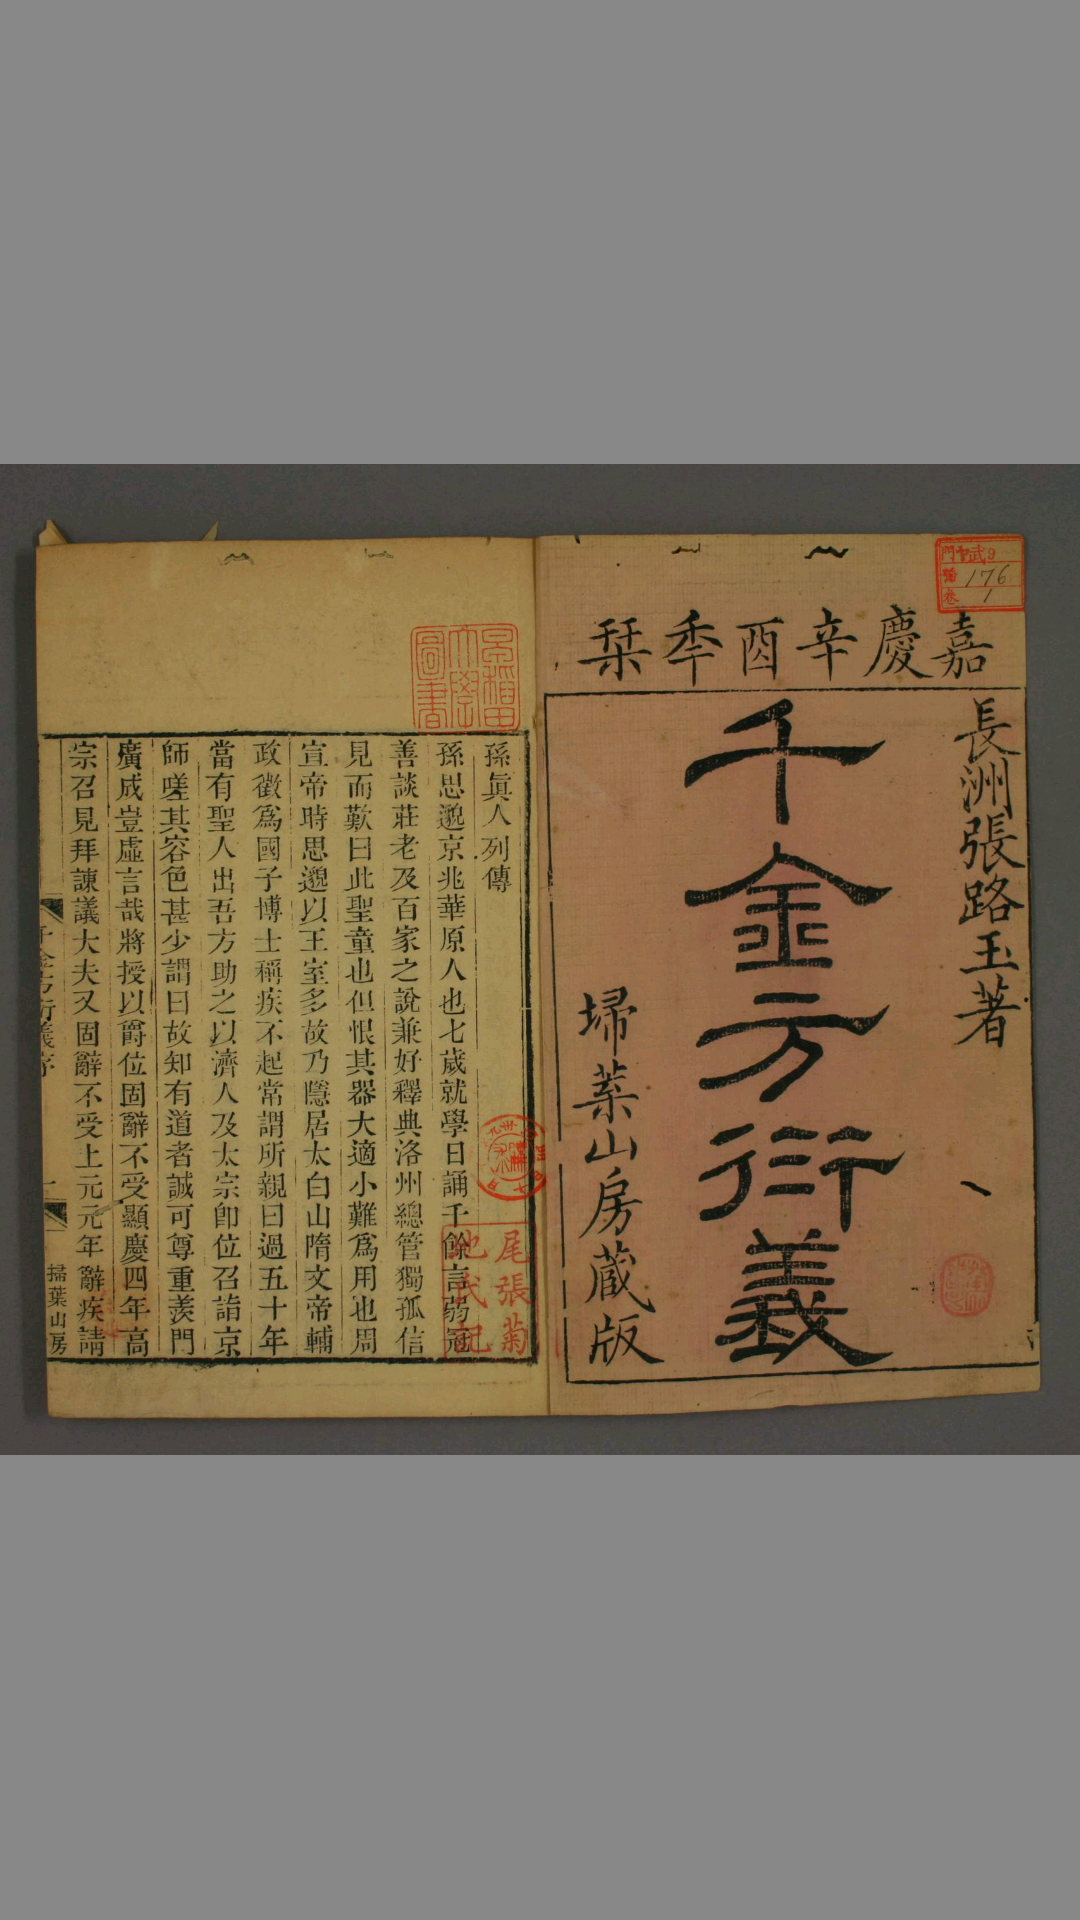 嘉慶辛酉秊栞
長洲張路玉著
千金方衍義
埽葉山房蔵版
門 ヤ武9
號 176
卷 1
早稲田大學圖書
孫眞人列傳
孫思邈京兆華原人也七歲就學日誦千餘言弱冠
善談莊老及百家之說兼好釋典洛州總管獨孤信
見而歎曰此聖童也但恨其器大適小難爲用也周
宣帝時思邈以王室多故乃隱居太白山隋文帝輔
政徵爲國子博士稱疾不起常謂所親曰過五十年
當有聖人出吾方助之以濟人及太宗卽位召詣京
師嗟其容色甚少謂曰故知有道者誠可尊重羨門
廣成豈虛言哉將授以爵位固辭不受顯慶四年高
宗召見拜諫議大夫又固辭不受上元元年辭疾請
千金方衍義序
一
掃葉山房
尾張菊
池氏記